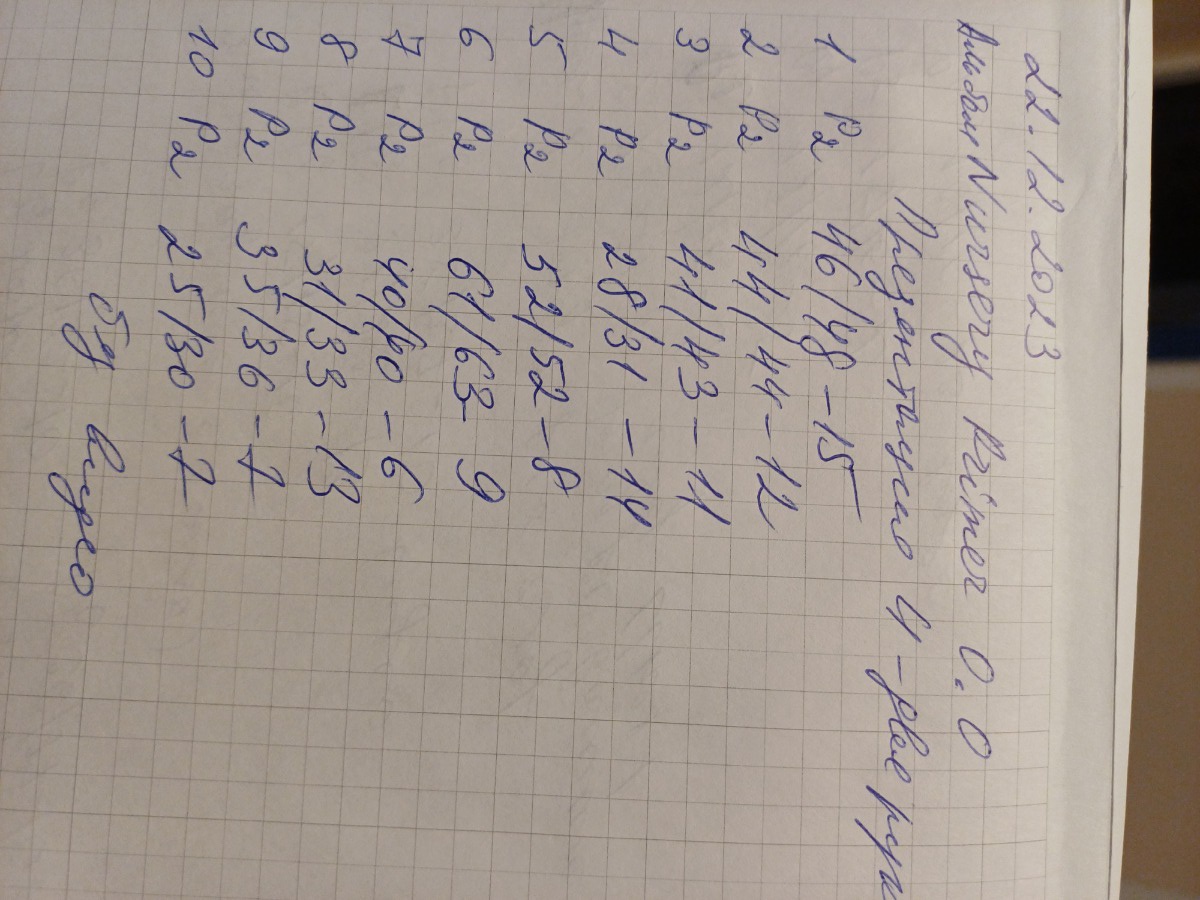 22.12.2023
Альбом Nursery Primer 0.0
Презентирую 4-рве рук
1 P2 46/48-15
2 P2 44/44-12
3 P2 41/43-11
4 P2 28/31-14
5 P2 52/52-8
6 P2 61/63-9
7 P2 40/60-6
8 P2 31/33-13
9 P2 35/36-7
10 P2 25/30-7
видео